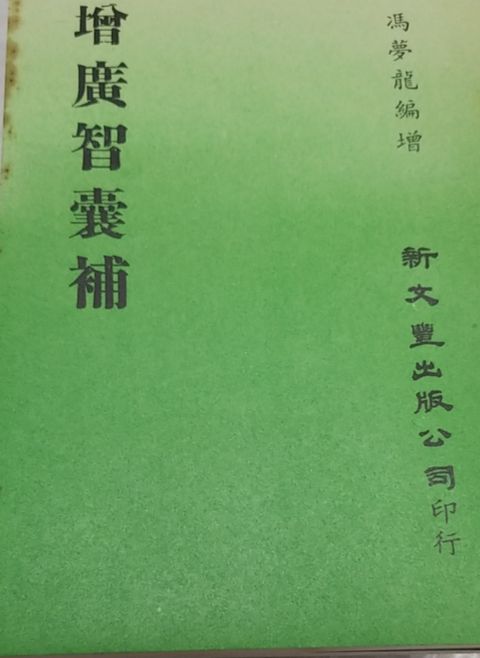 馮夢龍編增
增廣智囊補
新文豐出版公司印行